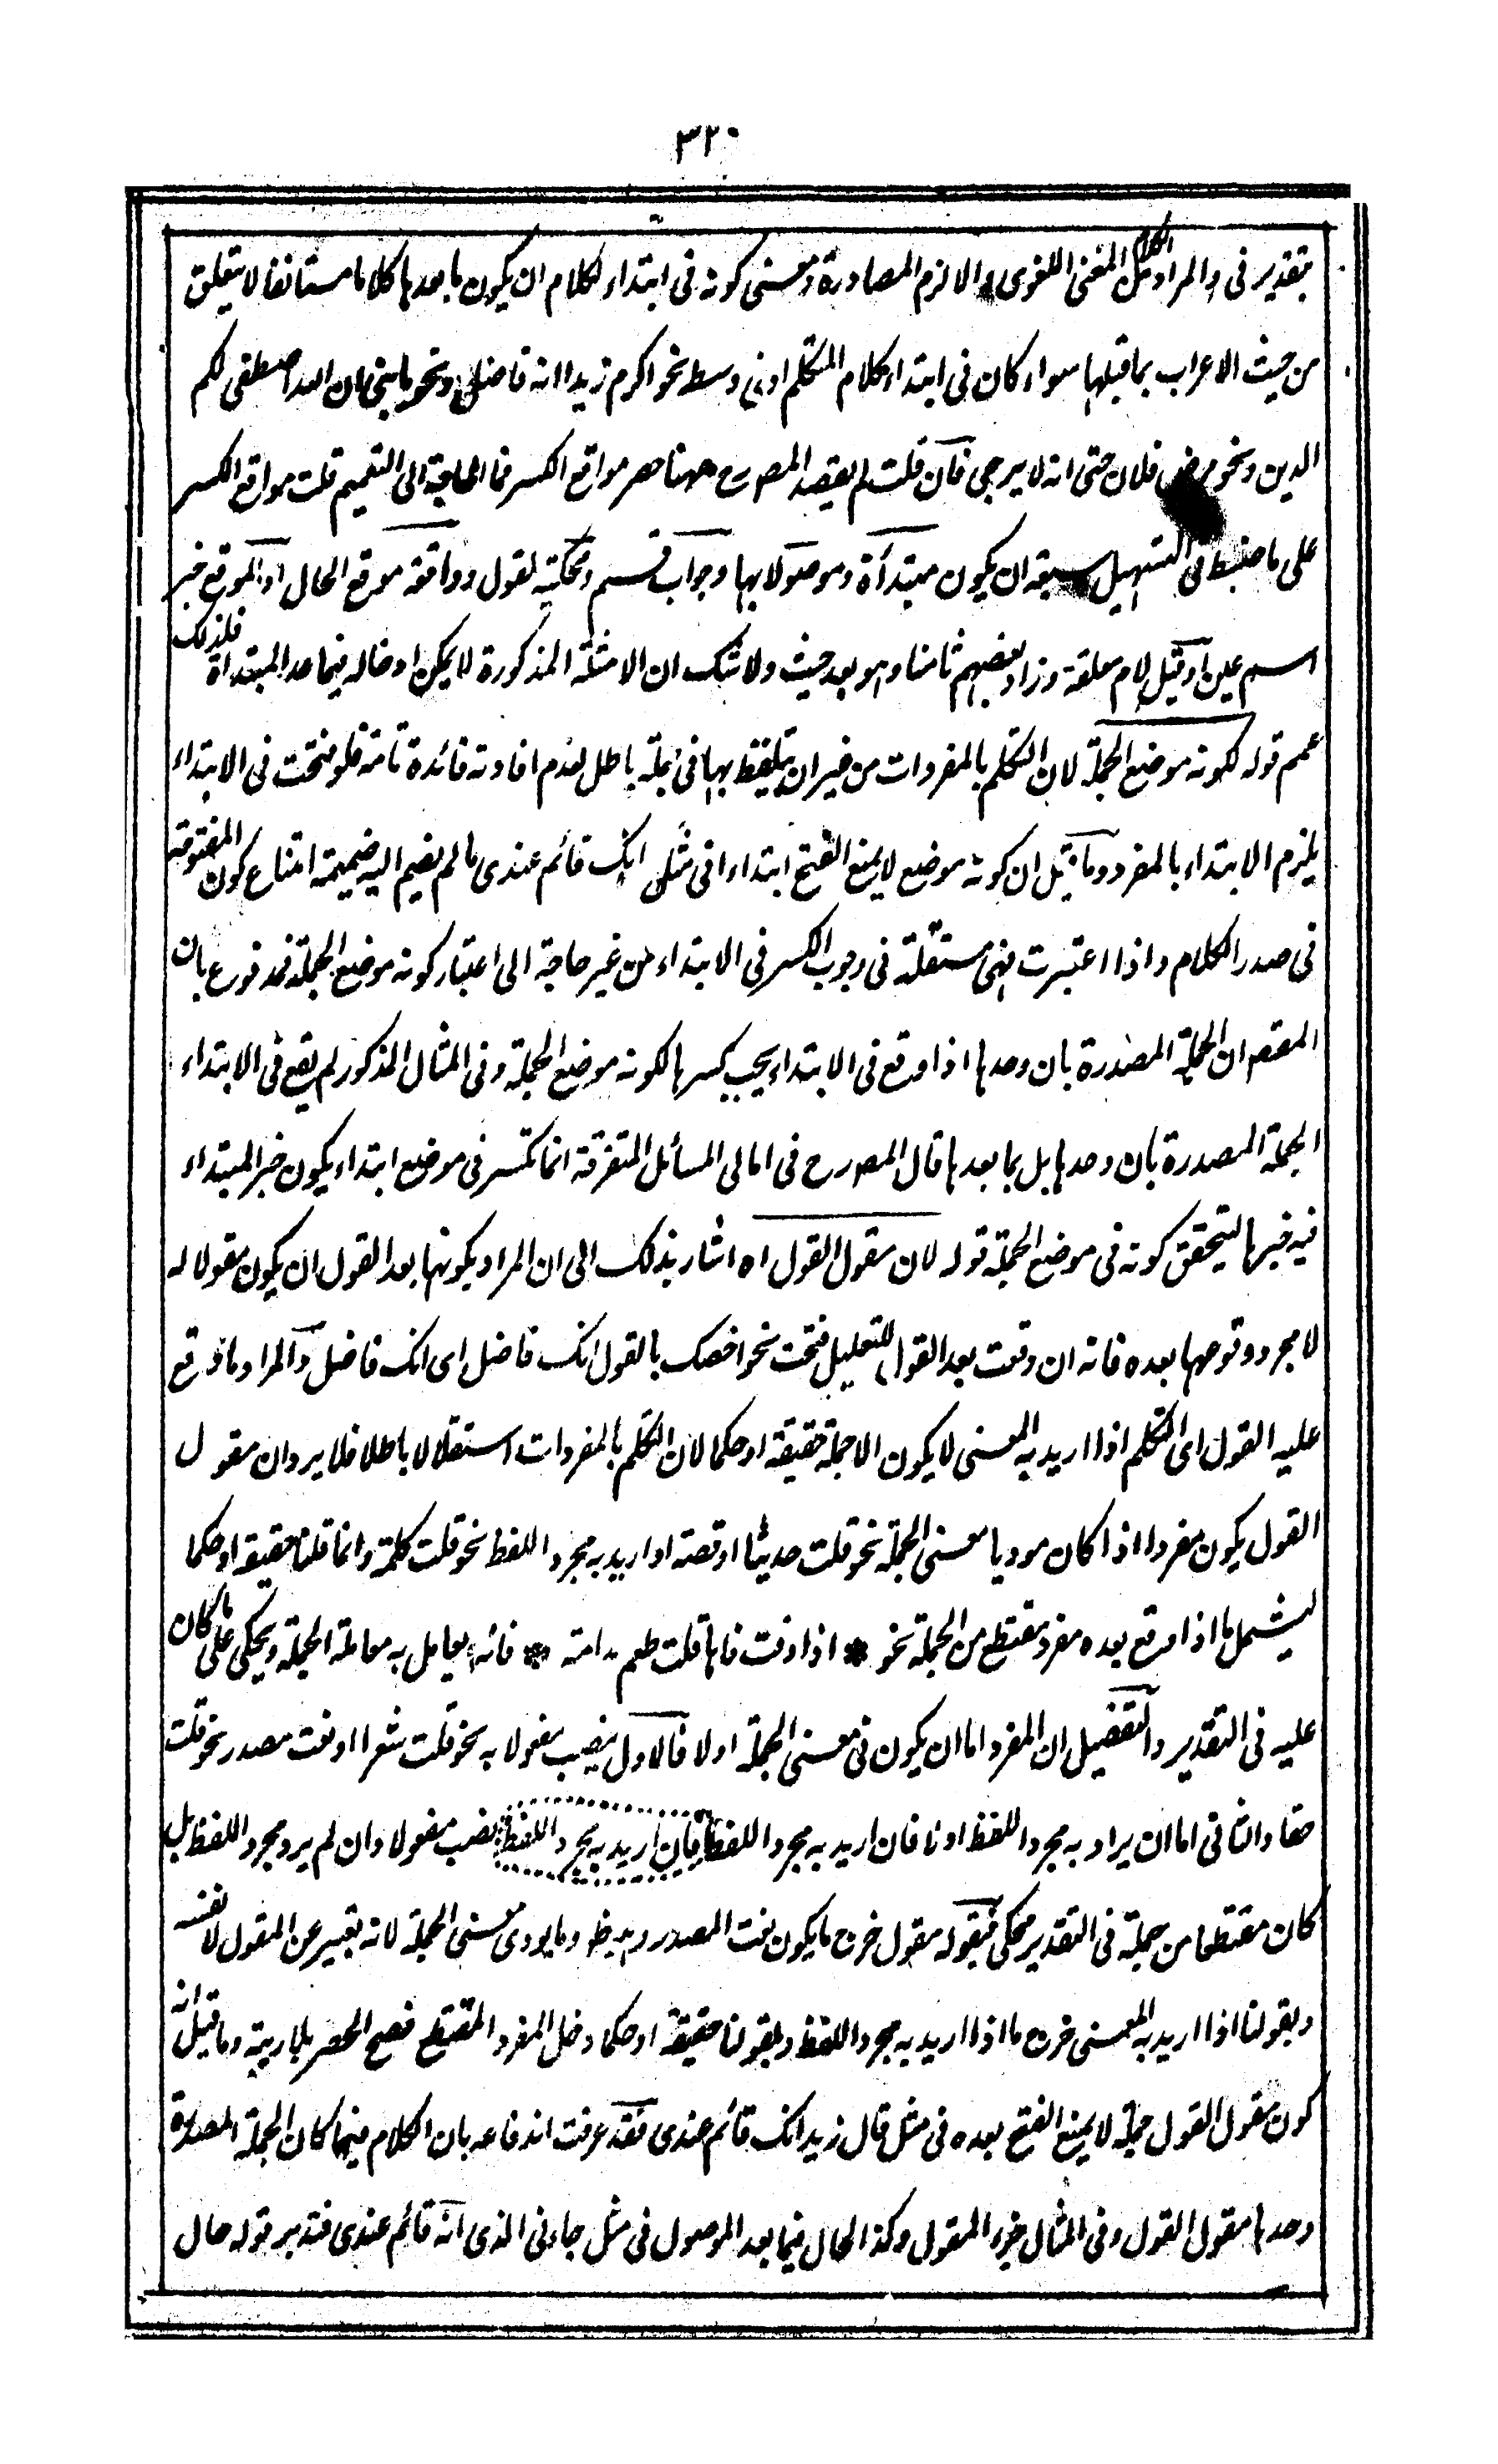 ٣٢٠
بتقدير فى والمراد من الكلام المعنى اللغوى والا لزم المصادرة ومعنى كونه فى ابتداء الكلام ان يكون ما بعدها كلاما مستانفا لا يتعلق
من حيث الاعراب بما قبلها سواء كان فى ابتداء كلام المتكلم او فى وسط نحو اكرم زيدا انه فاضل ونحو يا بنى ان الله اصطفى لكم
الدين ونحو مرض فلان حتى انه لا يرجى فان قلت لم يقصد المص رح ههنا حصر مواقع الكسر فما الحاجة الى التعميم قلت مواقع الكسر
على ما ضبط فى التسهيل سبعة ان يكون مبتدأة وموصولا بها وجواب قسم ومحكية لقول وواقعة موقع الحال او الموقع خبر
اسم عين او قبل لام معلقة وزاد بعضهم ثامنا وهو بعد حيث ولا شك ان الامثلة المذكورة لا يمكن ادخاله فيما عدا المبتدأة فلذلك
عمم قوله لكونه موضع الجملة لان التكلم بالمفردات من غير ان يتلفظ بها فى جملة باطل لعدم افادته فائدة تامة فلو فتحت فى الابتداء
يلزم الابتداء بالمفرد وما قيل ان كونه موضع لا يمنع الفتح ابتداء فى مثل انك قائم عندى ما لم يضم اليه ضميمة امتناع كون المفتوحة
فى صدر الكلام واذا اعتبرت فهى مستقلة فى وجوب الكسر فى الابتداء من غير حاجة الى اعتبار كونه موضع الجملة فمدفوع بان
المقصد ان الجملة المصدرة بان وحدها اذا وقع فى الابتداء يجب كسرها لكونه موضع الجملة وفى المثال المذكور لم يقع فى الابتداء
الجملة المصدرة بان وحدها بل بما بعدها قال المص رح فى امالى المسائل المتفرقة انما تكسر فى موضع ابتداء يكون خبر المبتداء
فيه خبرها ليتحقق كونه فى موضع الجملة قوله لان مقول القول اه اشار بذلك الى ان المراد بكونها بعد القول ان يكون مقولا له
لا مجرد وقوعها بعده فانه ان وقعت بعد القول للتعليل فتحت نحو اخصك بالقول انك فاضل اى لانك فاضل والمراد ما وقع
عليه القول اى التكلم اذا اريد به المعنى لا يكون الا جملة حقيقة او حكما لان التكلم بالمفردات استقلالا باطلا فلا يرد ان مقول
القول يكون مفردا اذا كان موديا معنى الجملة نحو قلت حديثا او قصة او اريد به مجرد اللفظ نحو قلت كلمة وانما قلنا حقيقة او حكما
ليشمل ما اذا وقع بعده مفرد مقتطع من الجملة نحو * اذا ذقت فاها قلت طعم مدامة * فانه يعامل به معاملة الجملة ويحكى على ما كان
عليه فى التقدير والتفصيل ان المفرد اما ان يكون فى معنى الجملة اولا فالاول ينصب مفعولا به نحو قلت شعرا او نعت مصدر نحو قلت
حقا والثانى اما ان يراد به مجرد اللفظ اولا فان اريد به مجرد اللفظ فان اريد به مجرد اللفظ نصب مفعولا وان لم يرد مجرد اللفظ بل
كان مقتطعا من جملة فى التقدير محكى فبقوله مقول خرج ما يكون نعت المصدر وما يودى معنى الجملة لانه تعبير عن المقول لا نفسه
وبقولنا اذا اريد به المعنى خرج ما اذا اريد به مجرد اللفظ وبقولنا حقيقة او حكما دخل المفرد المقتطع فصح الحصر بلا ريبة وما قيل انه
كون مقول القول جملة لا يمنع الفتح بعده فى مثل قال زيد انك قائم عندى فقد عرفت اندفاعه بان الكلام فيما كان الجملة المصدرة
وحدها مقول القول وفى المثال جزء المقول وكذا الحال فيما بعد الموصول فى مثل جاءنى الذى انه قائم عندى فتدبر قوله حال